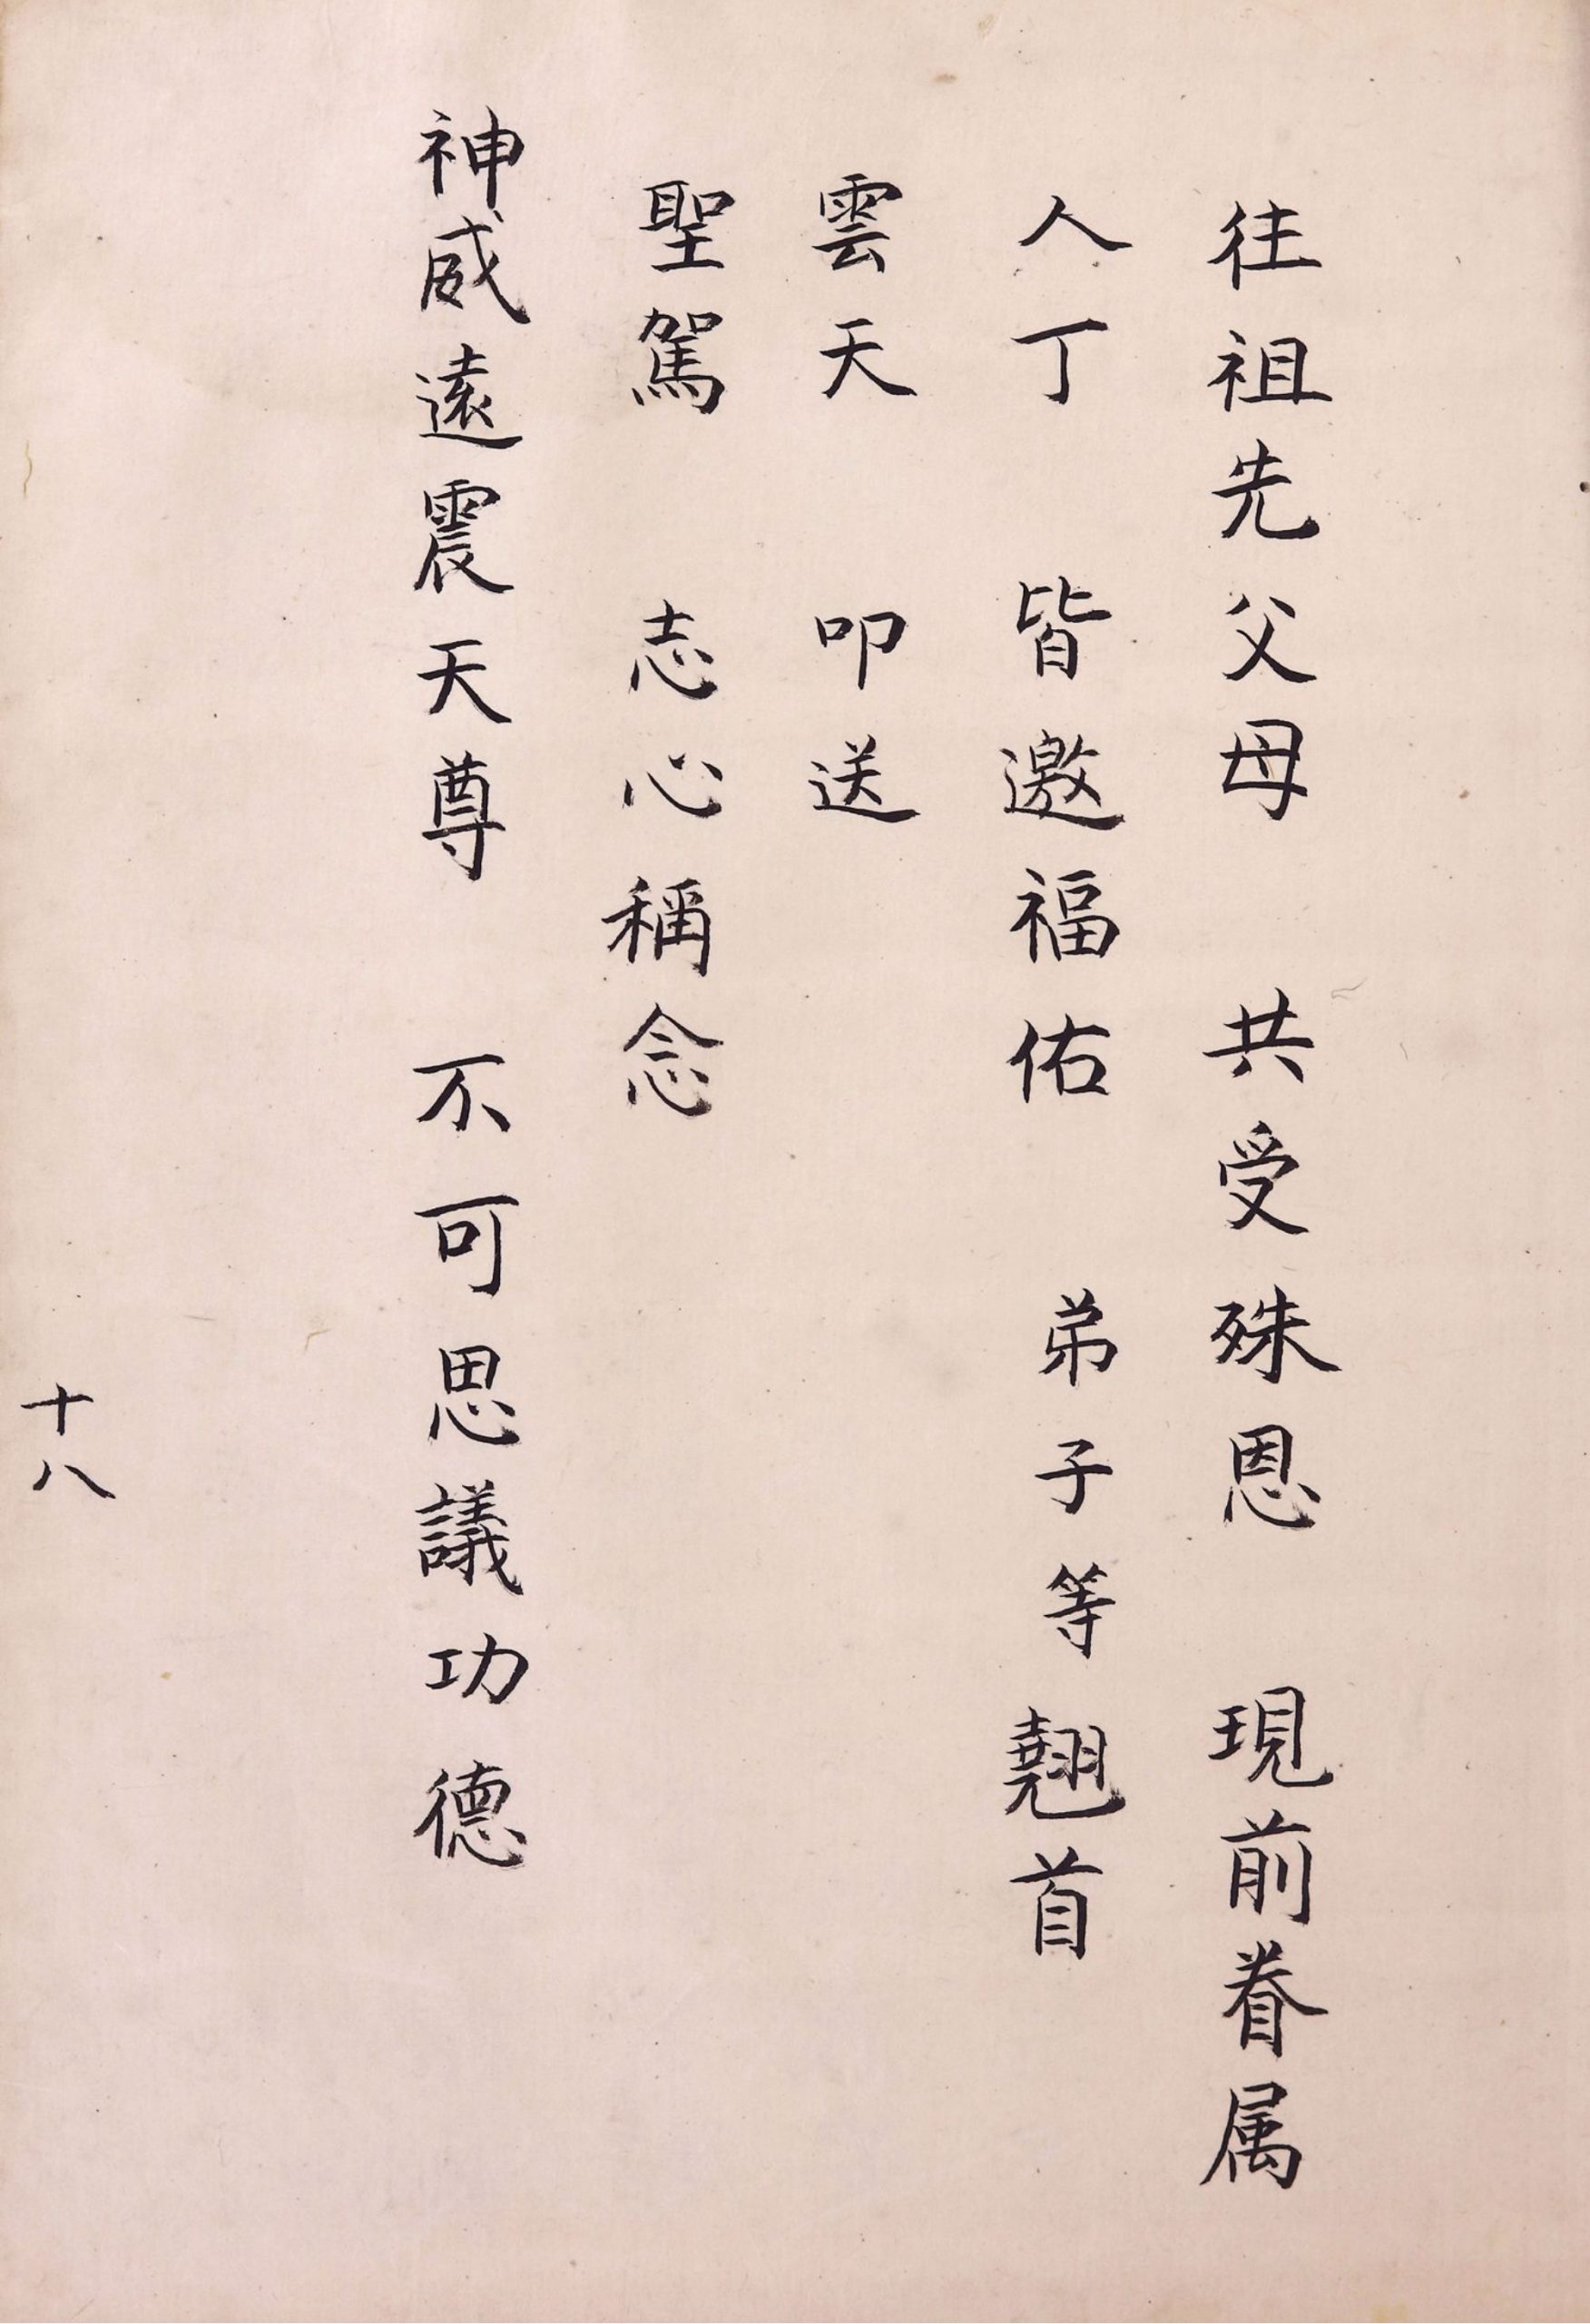 徃祖先父母　共受殊恩　現前眷属
人丁　皆邀福佑　弟子等翹首
雲天　叩送
聖駕　志心稱念
神威遠震天尊　不可思議功德
十八